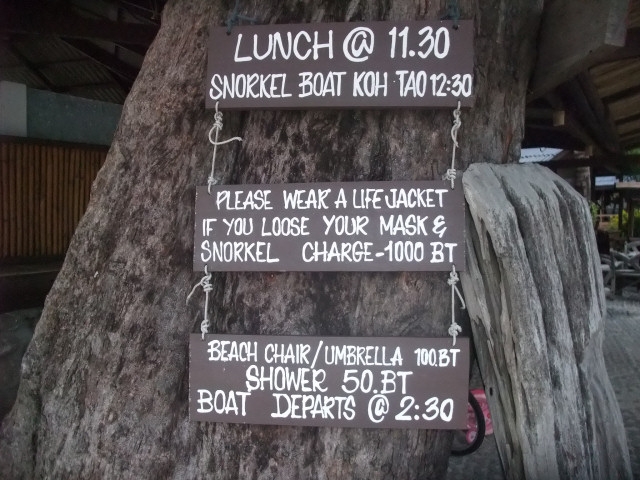 LUNCH @ 11.30
SNORKEL BOAT KOH TAO 12:30
PLEASE WEAR A LIFE JACKET
IF YOU LOOSE YOUR MASK &
SNORKEL CHARGE-1000 BT
BEACH CHAIR/UMBRELLA 100.BT
SHOWER 50.BT
BOAT DEPARTS @ 2:30